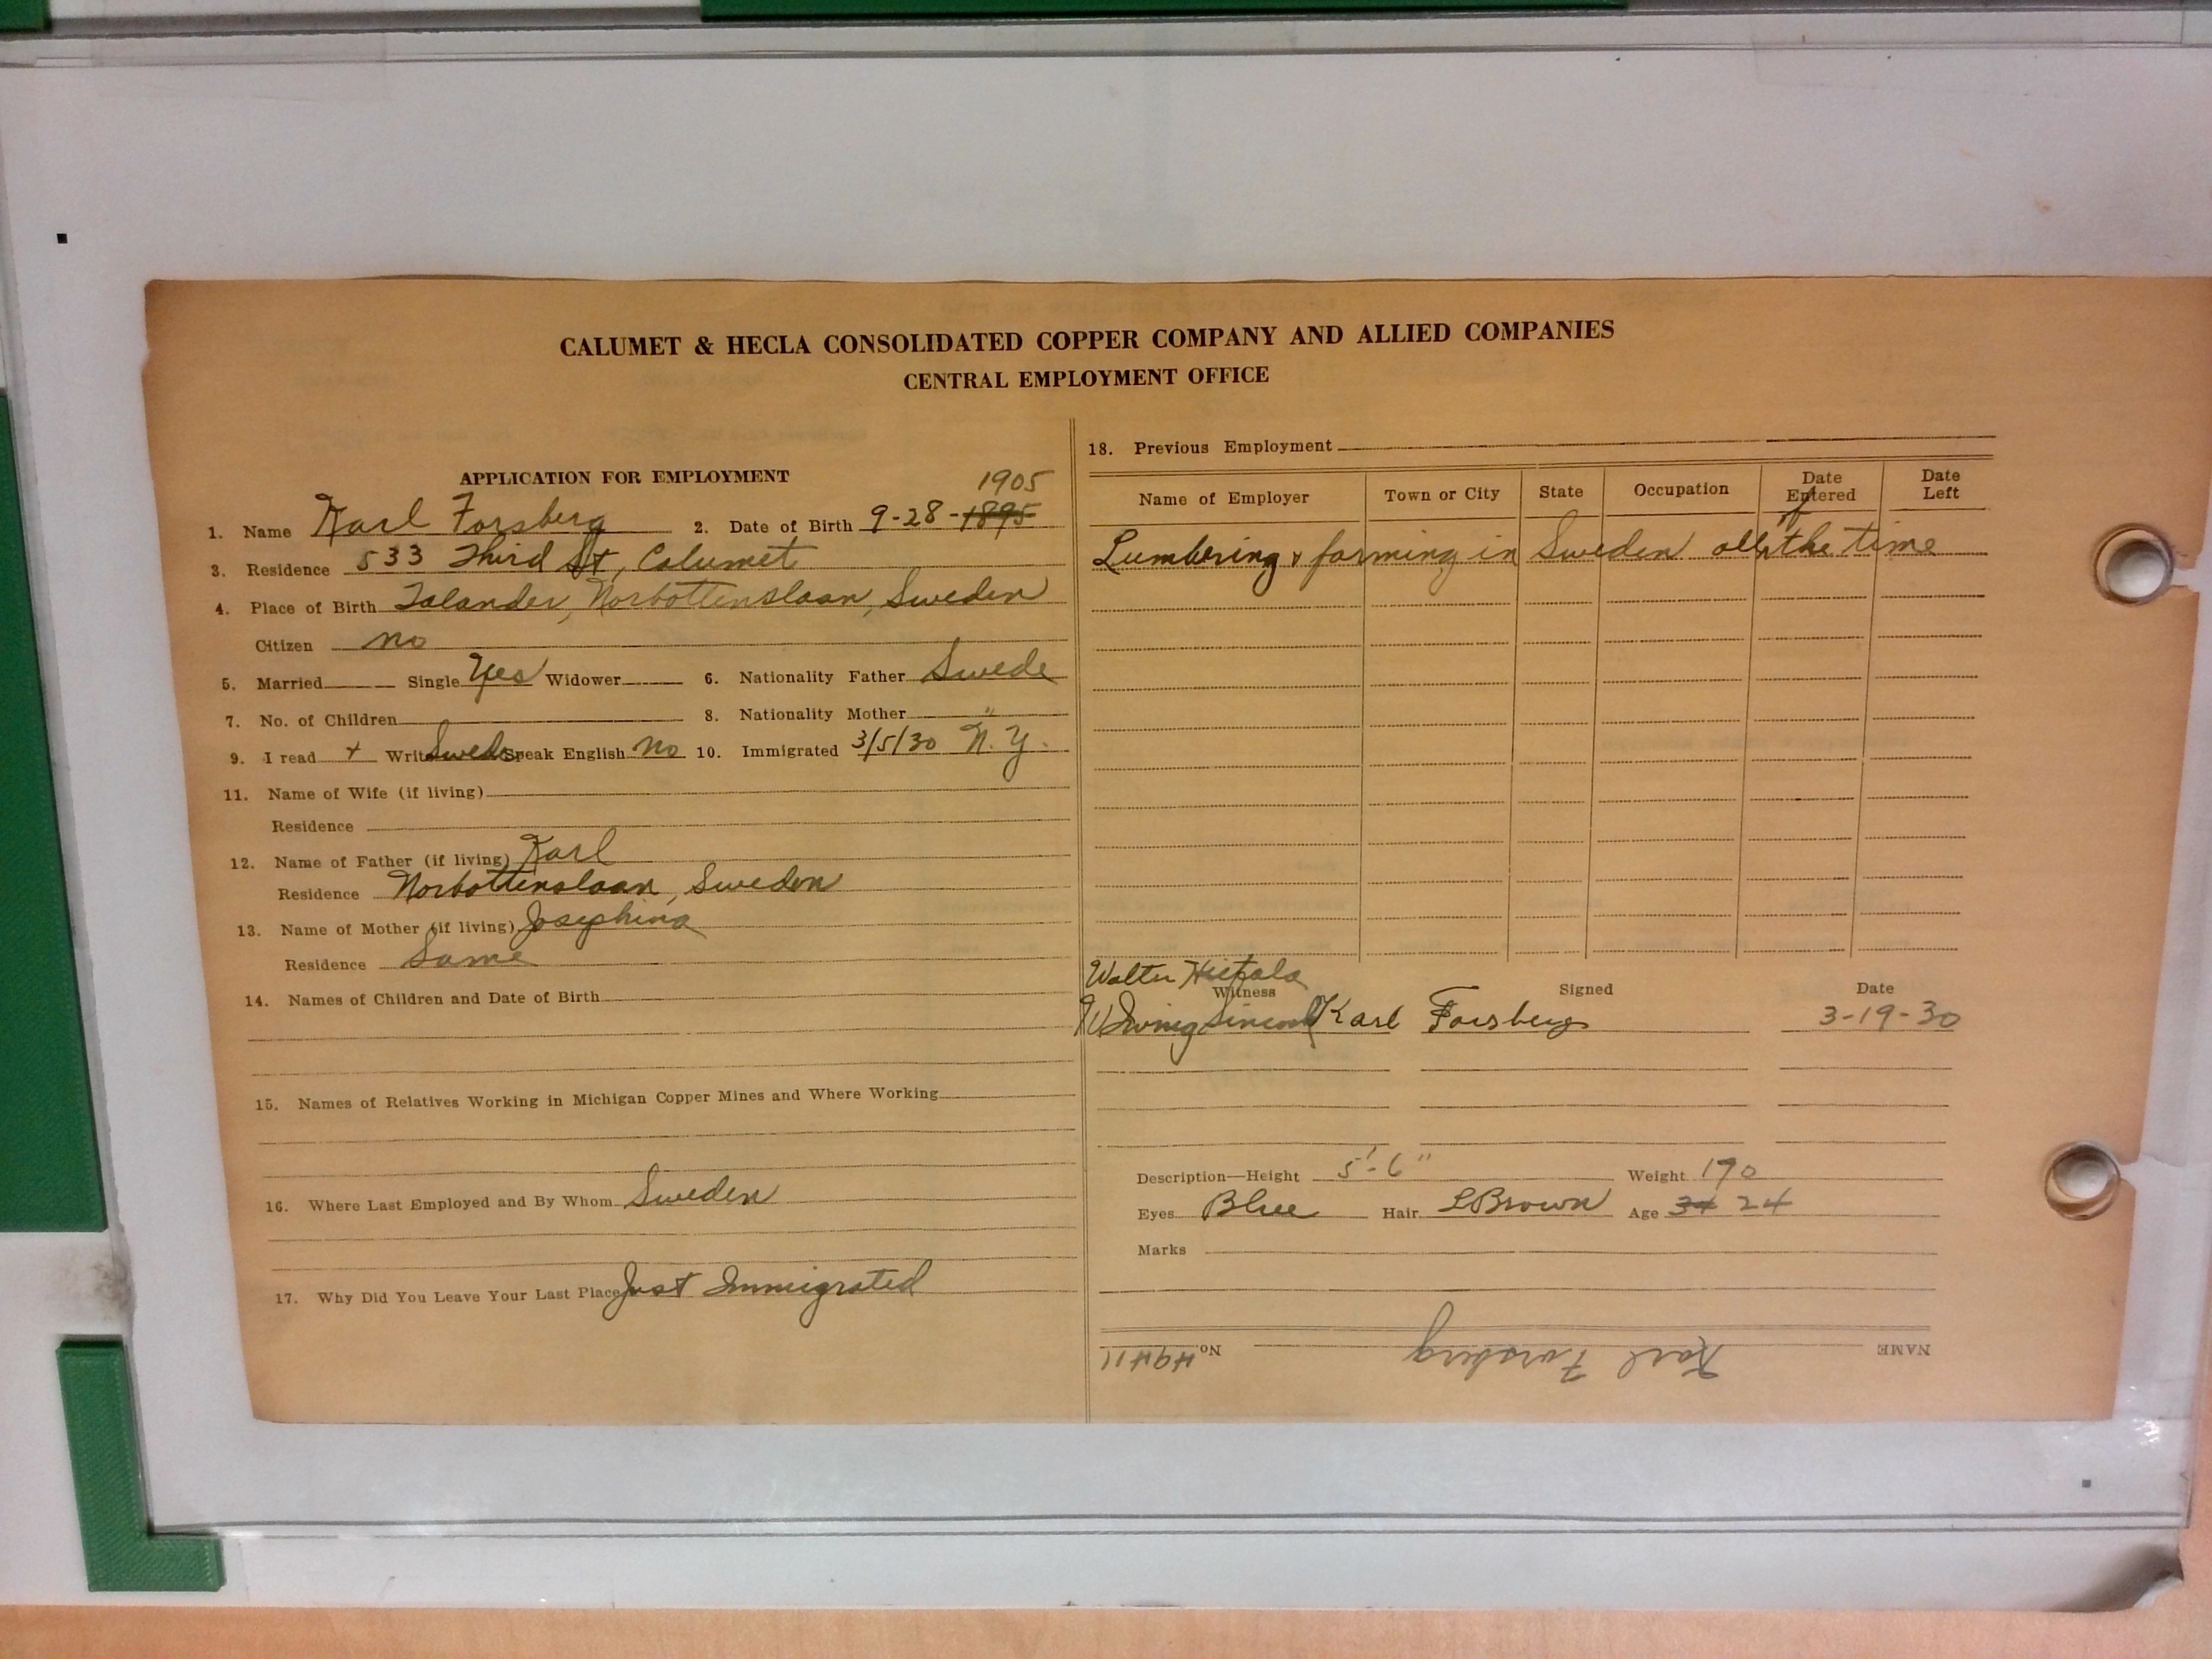 CALUMET & HECLA CONSOLIDATED COPPER COMPANY AND ALLIED COMPANIES
CENTRAL EMPLOYMENT OFFICE
APPLICATION FOR EMPLOYMENT
1905
1. Name Karl Forsberg 2. Date of Birth 9-28-1895
3. Residence 533 Third St, Calumet
4. Place of Birth Talander, Norbottenslaan, Sweden
Citizen no
5. Married Single Yes Widower 6. Nationality Father Swede
7. No. of Children 8. Nationality Mother "
9. I read + Write Speak English no 10. Immigrated 3/5/30 N.Y.
11. Name of Wife (if living)
Residence
12. Name of Father (if living) Karl
Residence Norbottenslaan, Sweden
13. Name of Mother (if living) Josephina
Residence Same
14. Names of Children and Date of Birth
15. Names of Relatives Working in Michigan Copper Mines and Where Working
16. Where Last Employed and By Whom Sweden
17. Why Did You Leave Your Last Place Just Immigrated
18. Previous Employment
Name of Employer Town or City State Occupation Date Entered Date Left
Lumbering & farming in Sweden all the time
Walter Hietala
Witness Signed Date
Karl Forsberg 3-19-30
Description—Height 5'-6" Weight 170
Eyes Blue Hair LBrown Age 34 24
Marks
NAME Karl Forsberg No. 49411